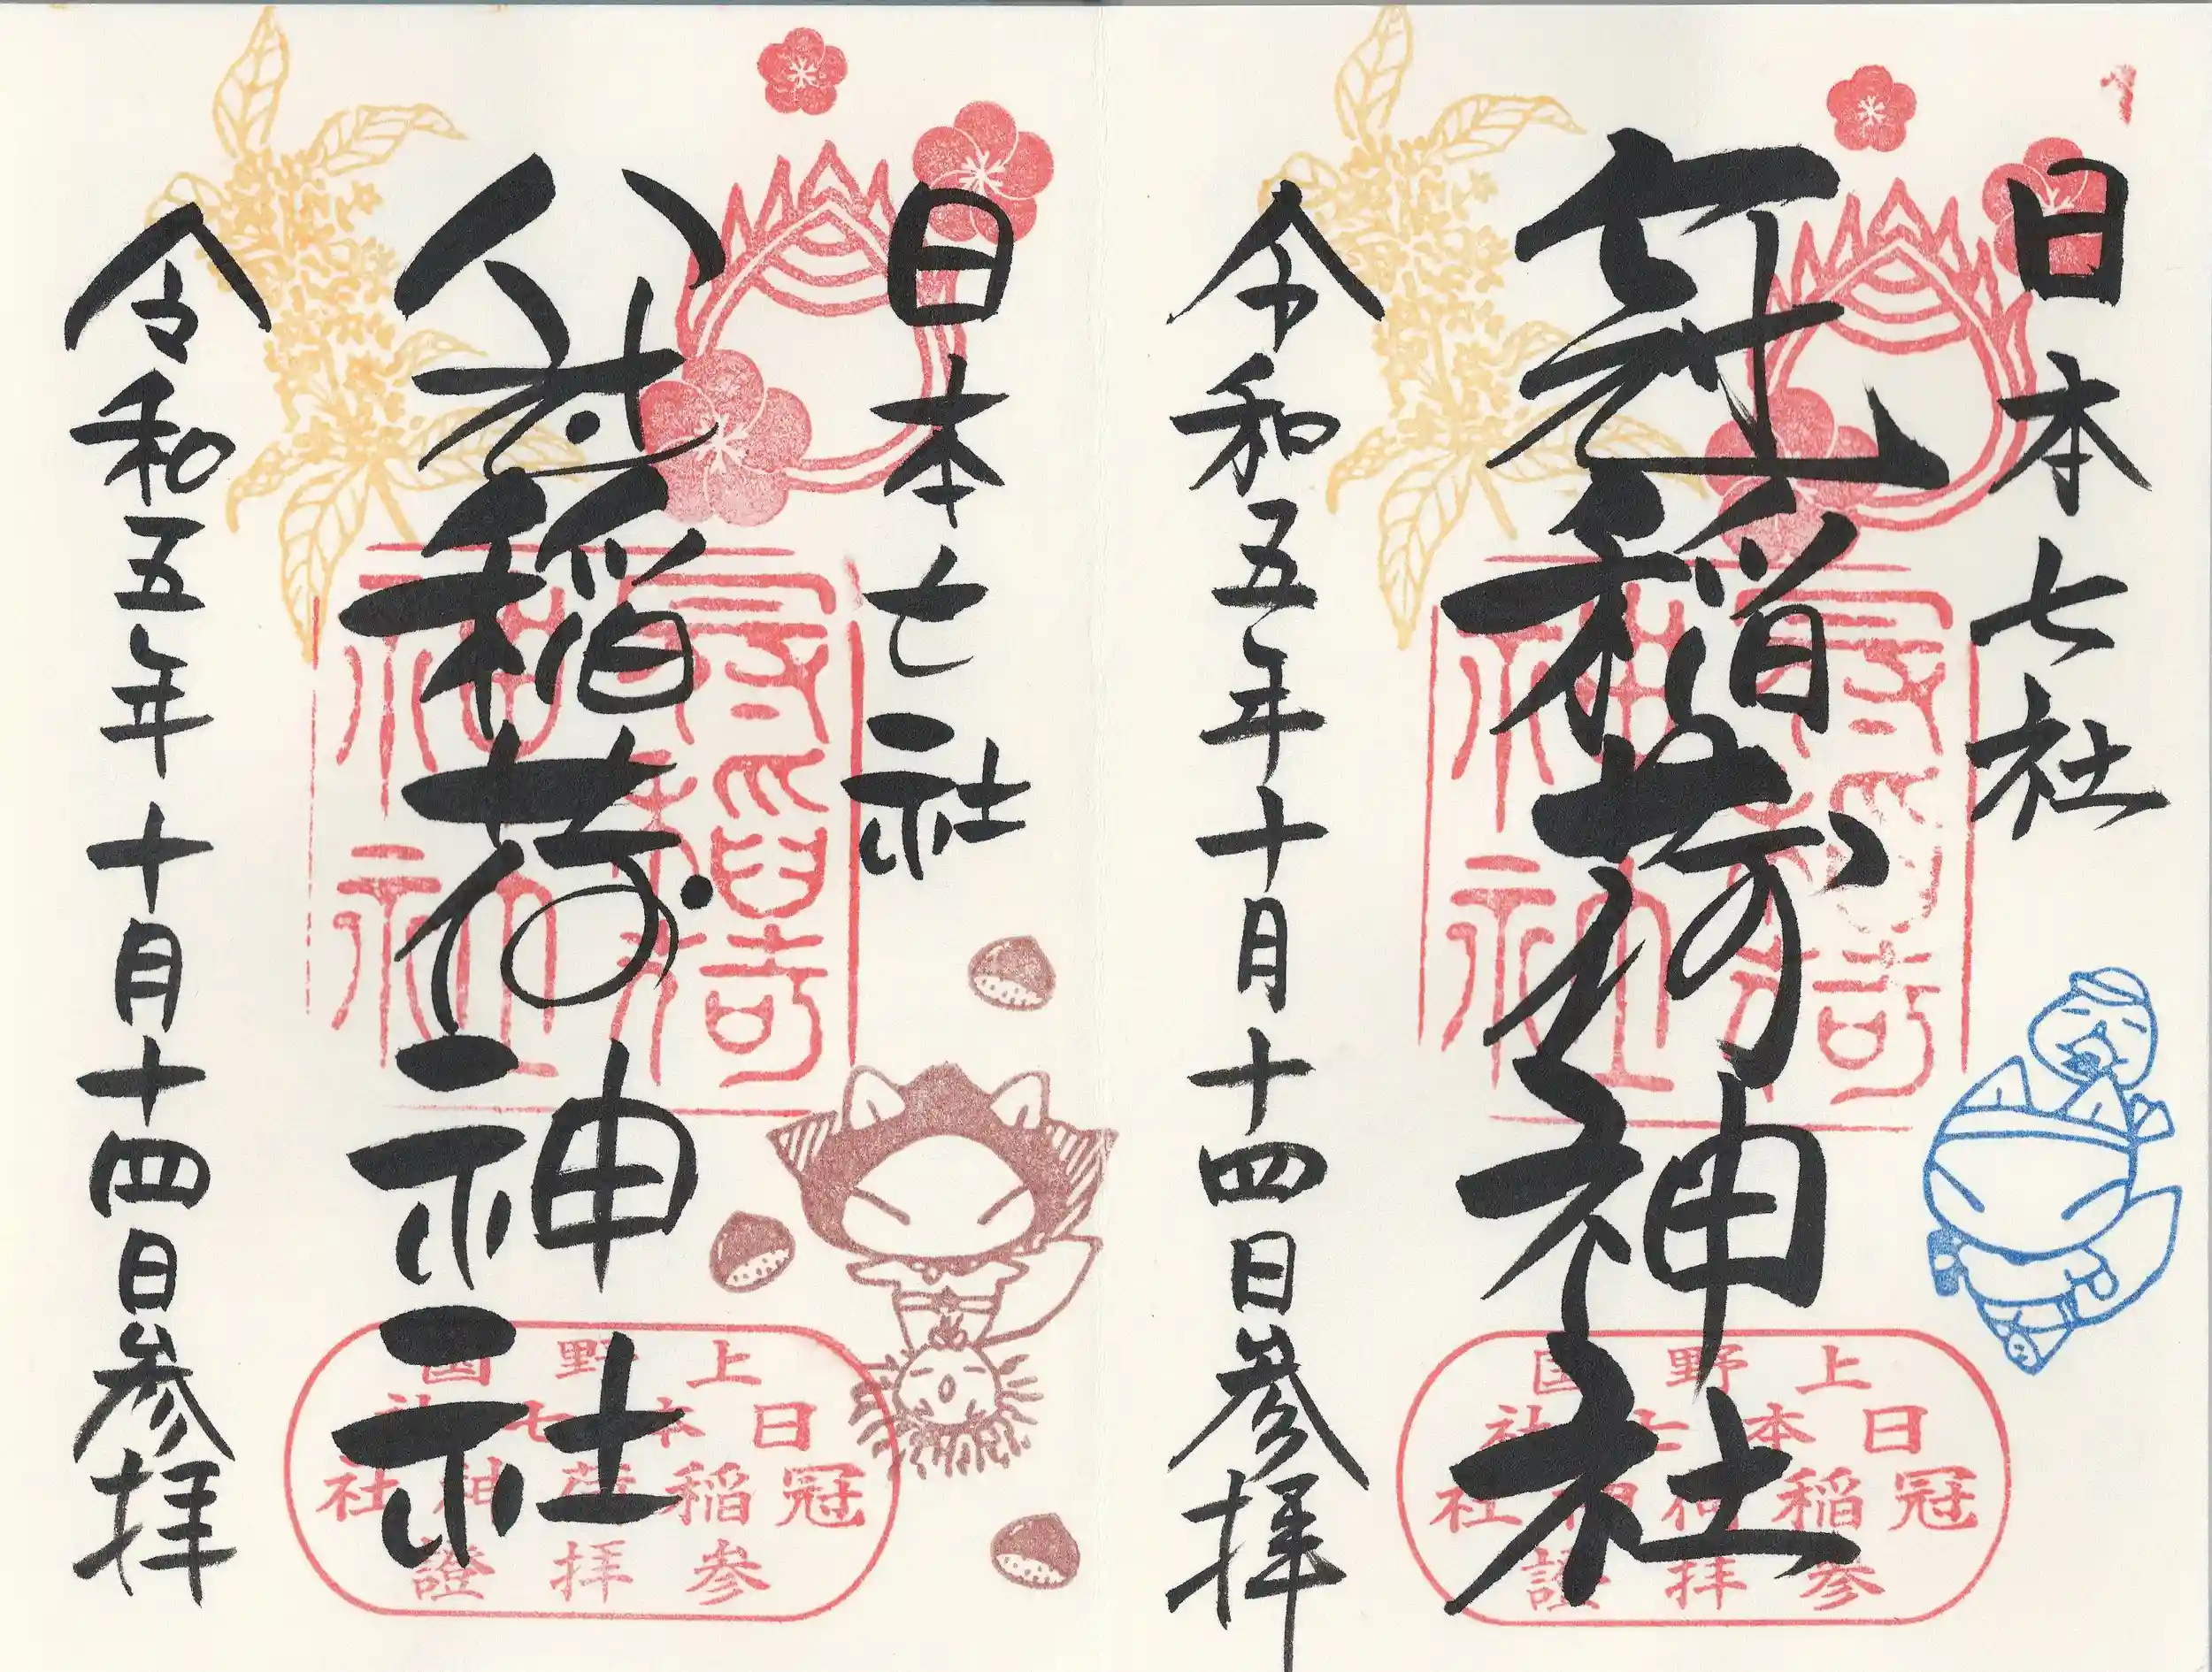 日本七社
冠稲荷神社
令和五年十月十四日参拝
冠稲荷
神社
上野国
日本七社
冠稲荷神社
参拝證
日本七社
冠稲荷神社
令和五年十月十四日参拝
冠稲荷
神社
上野国
日本七社
冠稲荷神社
参拝證